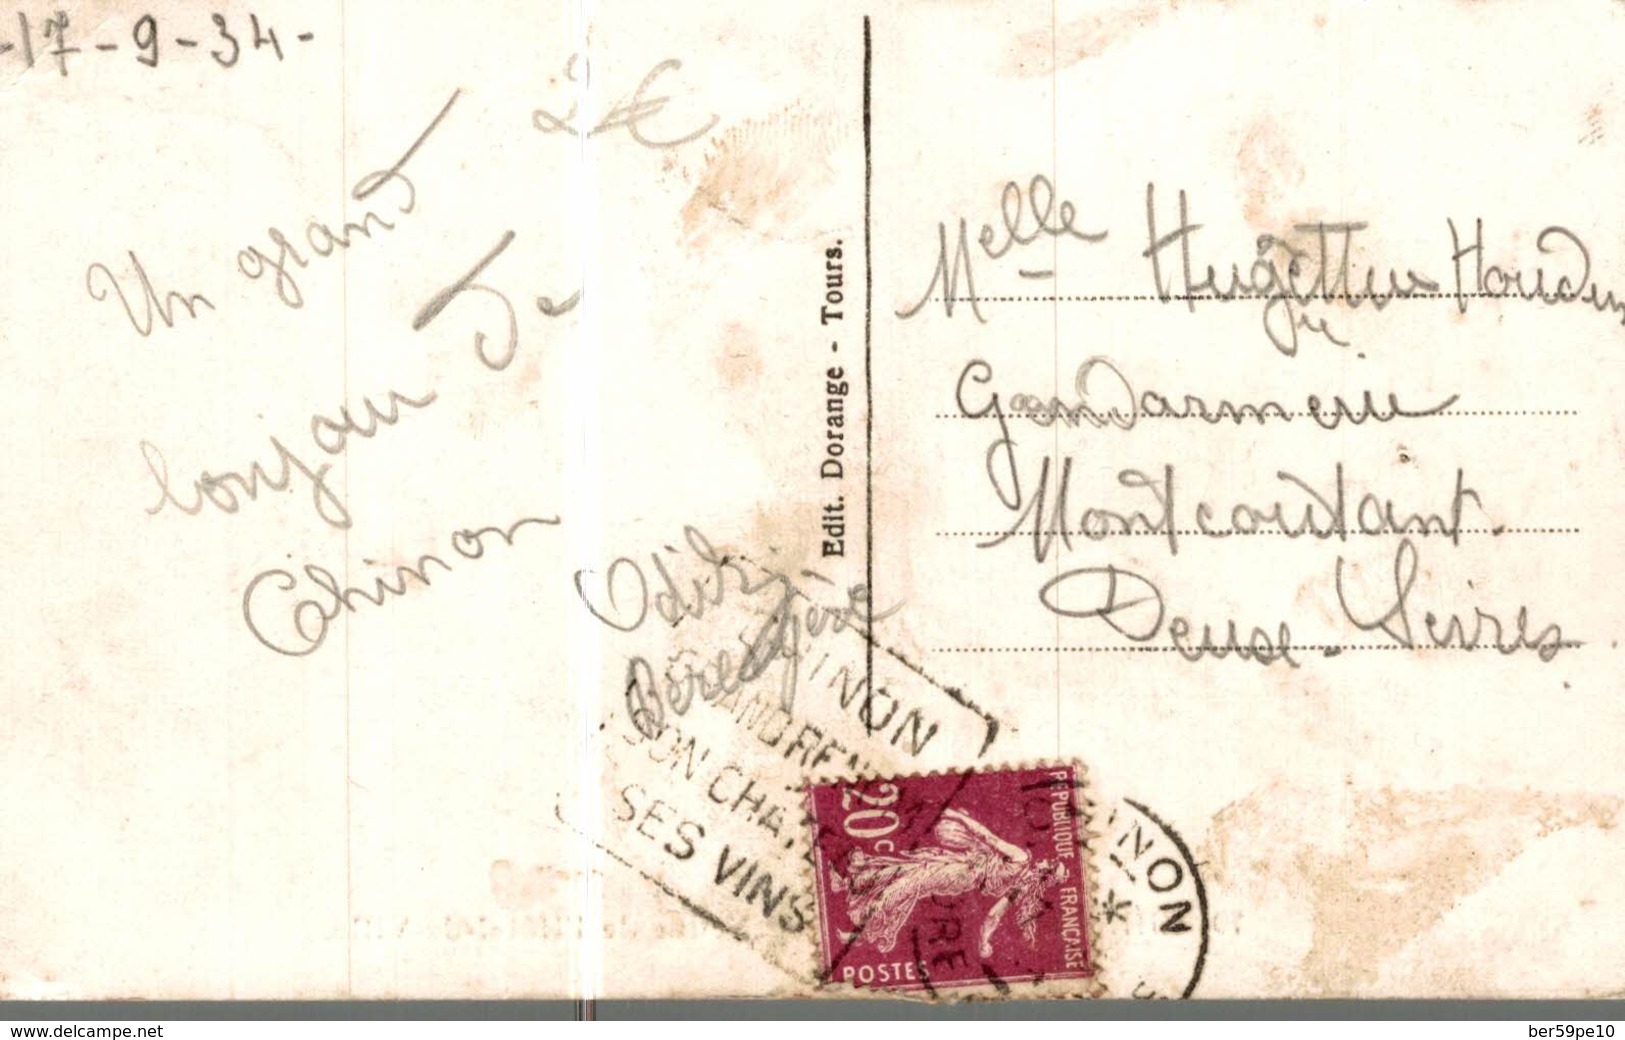 -17-9-34-
2€
Un grand
bonjour de
Chinon
Odile
Bérengère
Edit. Dorange - Tours.
Melle Huguette
Gendarmerie
Montcoutant.
Deux-Sèvres
CHINON
GRAND
SON CHATEAU
SES VINS
20c
REPUBLIQUE FRANCAISE
POSTES
CHINON
www.delcampe.net
ber59pe10